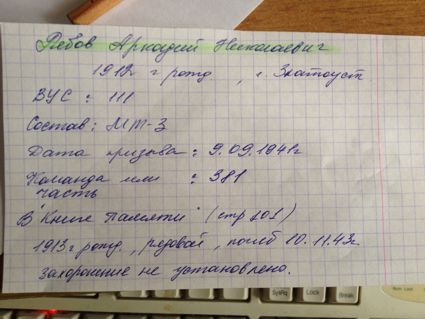 Рябов Аркадий Николаевич
1912 г рожд. , г. Златоуст
ВУС : 111
Состав : МТ-3
Дата призыва : 9.09.1941г
Команда или : 381
часть
В "Книге Памяти" (стр 101)
1913 г рожд., рядовой, погиб 10.11.43г.
захоронение не установлено.
SysRq
Lock
Break
Num Lock